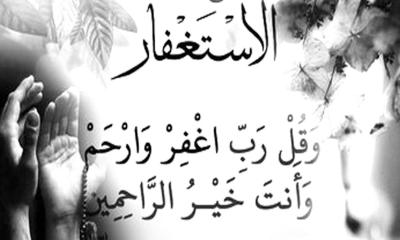 الاسْتَغْفار
وَقُلْ رَبِّ اغْفِرْ وَارْحَمْ
وَأَنتَ خَيْرُ الرَّاحِمِينَ